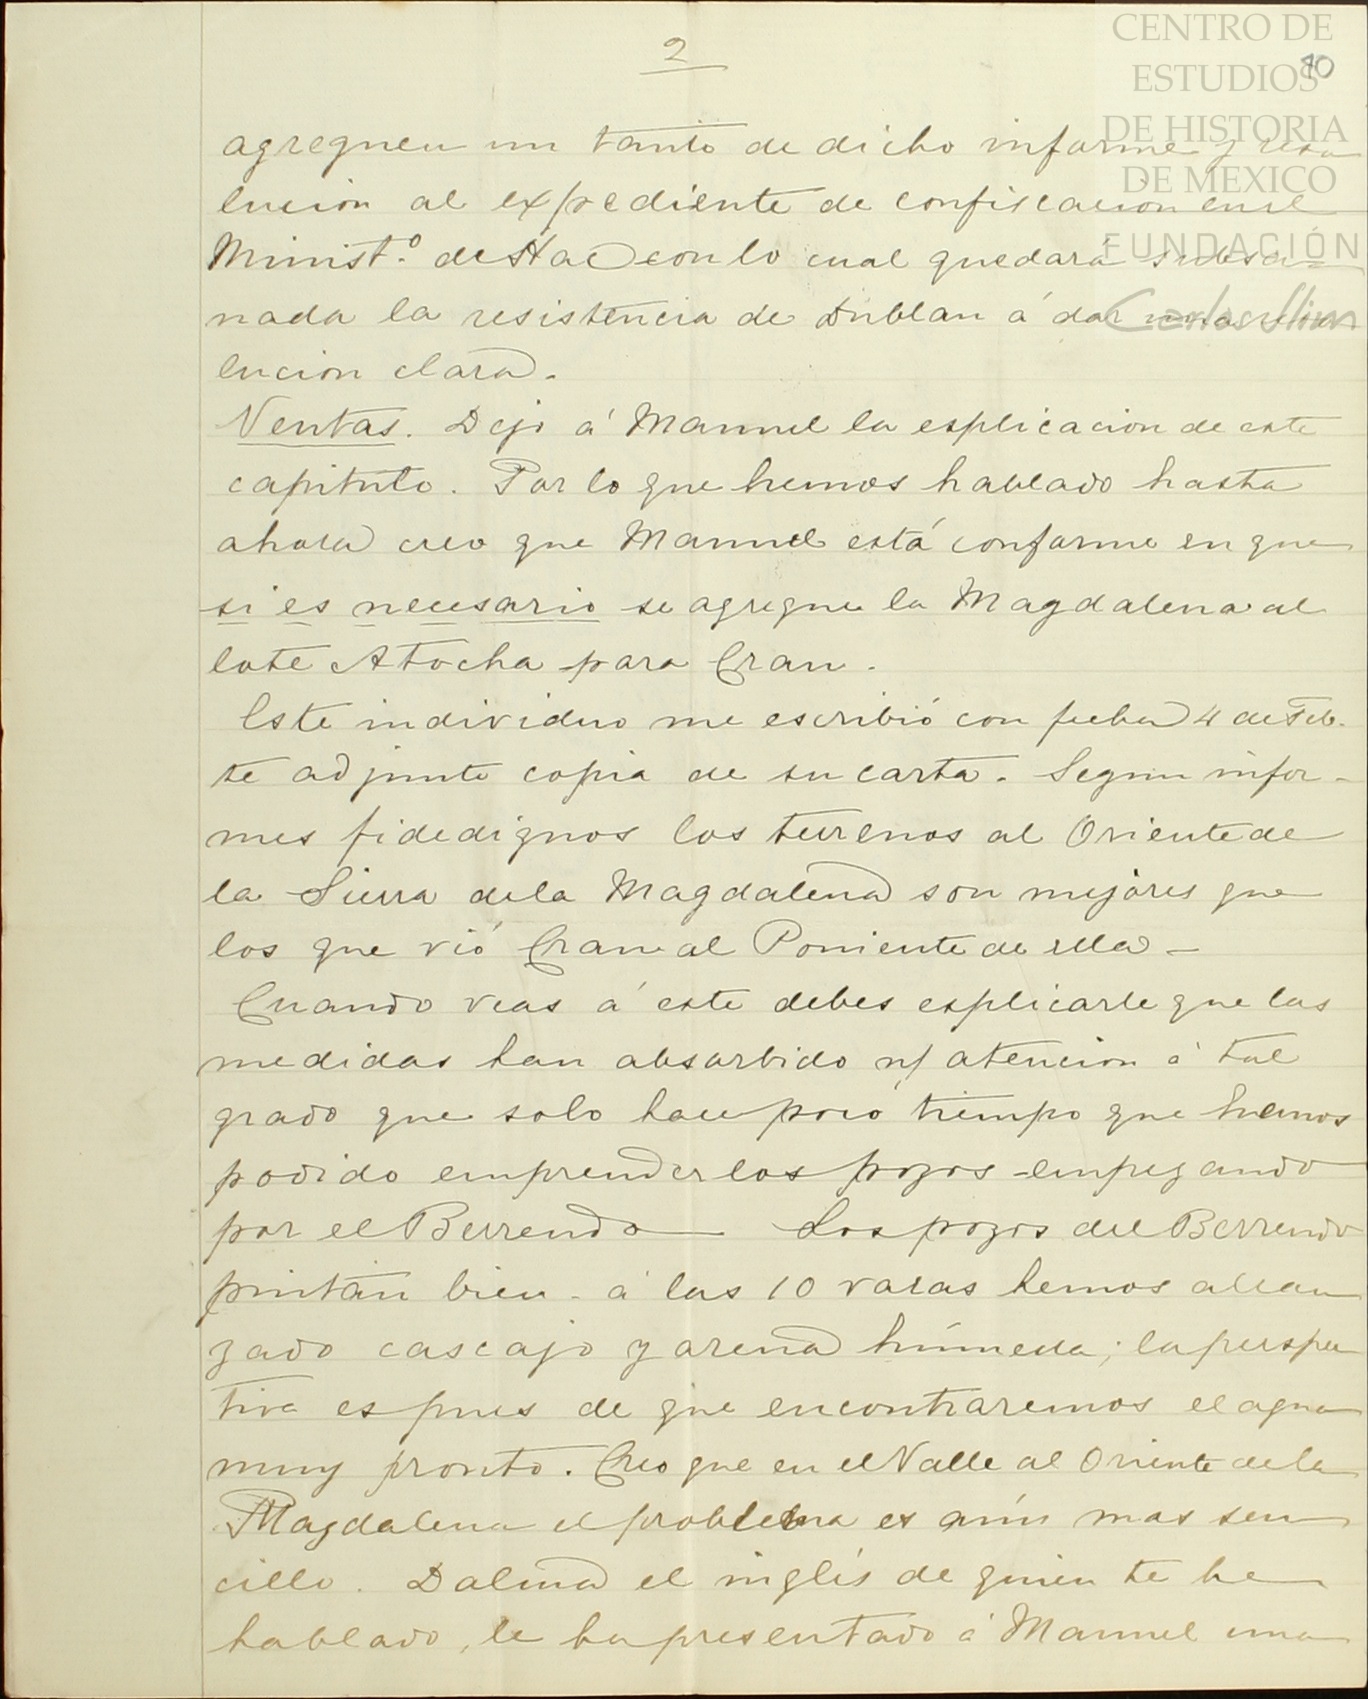 2
10
CENTRO DE
ESTUDIOS
DE HISTORIA
DE MEXICO
FUNDACIÓN
Carlos Slim
agreguen un tanto de dicho informe y reso
lucion al expediente de confiscacion en el
Minist.º de Hac con lo cual quedará subsa
nada la resistencia de Dublan á dar una reso
lucion clara.
Ventas. Dejo á Manuel la esplicacion de este
capitulo. Por lo que hemos hablado hasta
ahora creo que Manuel está conforme en que
si es necesario se agregue la Magdalena al
lote Atocha para Cran.
Este individuo me escribió con fecha 4 de Feb.
te adjunto copia de su carta. Segun infor-
mes fidedignos los terrenos al Oriente de
la Sierra de la Magdalena son mejores que
los que vió Cran al Poniente de ella -
Cuando veas á este debes esplicarle que las
medidas han absorbido n/ atencion á tal
grado que solo hace poco tiempo que hemos
podido emprender los pozos - empezando
por el Berrendo — Los pozos del Berrendo
pintan bien - á las 10 varas hemos alcan
zado cascajo y arena húmeda; la perspec
tiva es pues de que encontraremos el agua
muy pronto. Creo que en el Valle al Oriente de la
Magdalena el problema es aún mas sen
cillo. Dalma el inglés de quien te he
hablado, le ha presentado á Manuel una